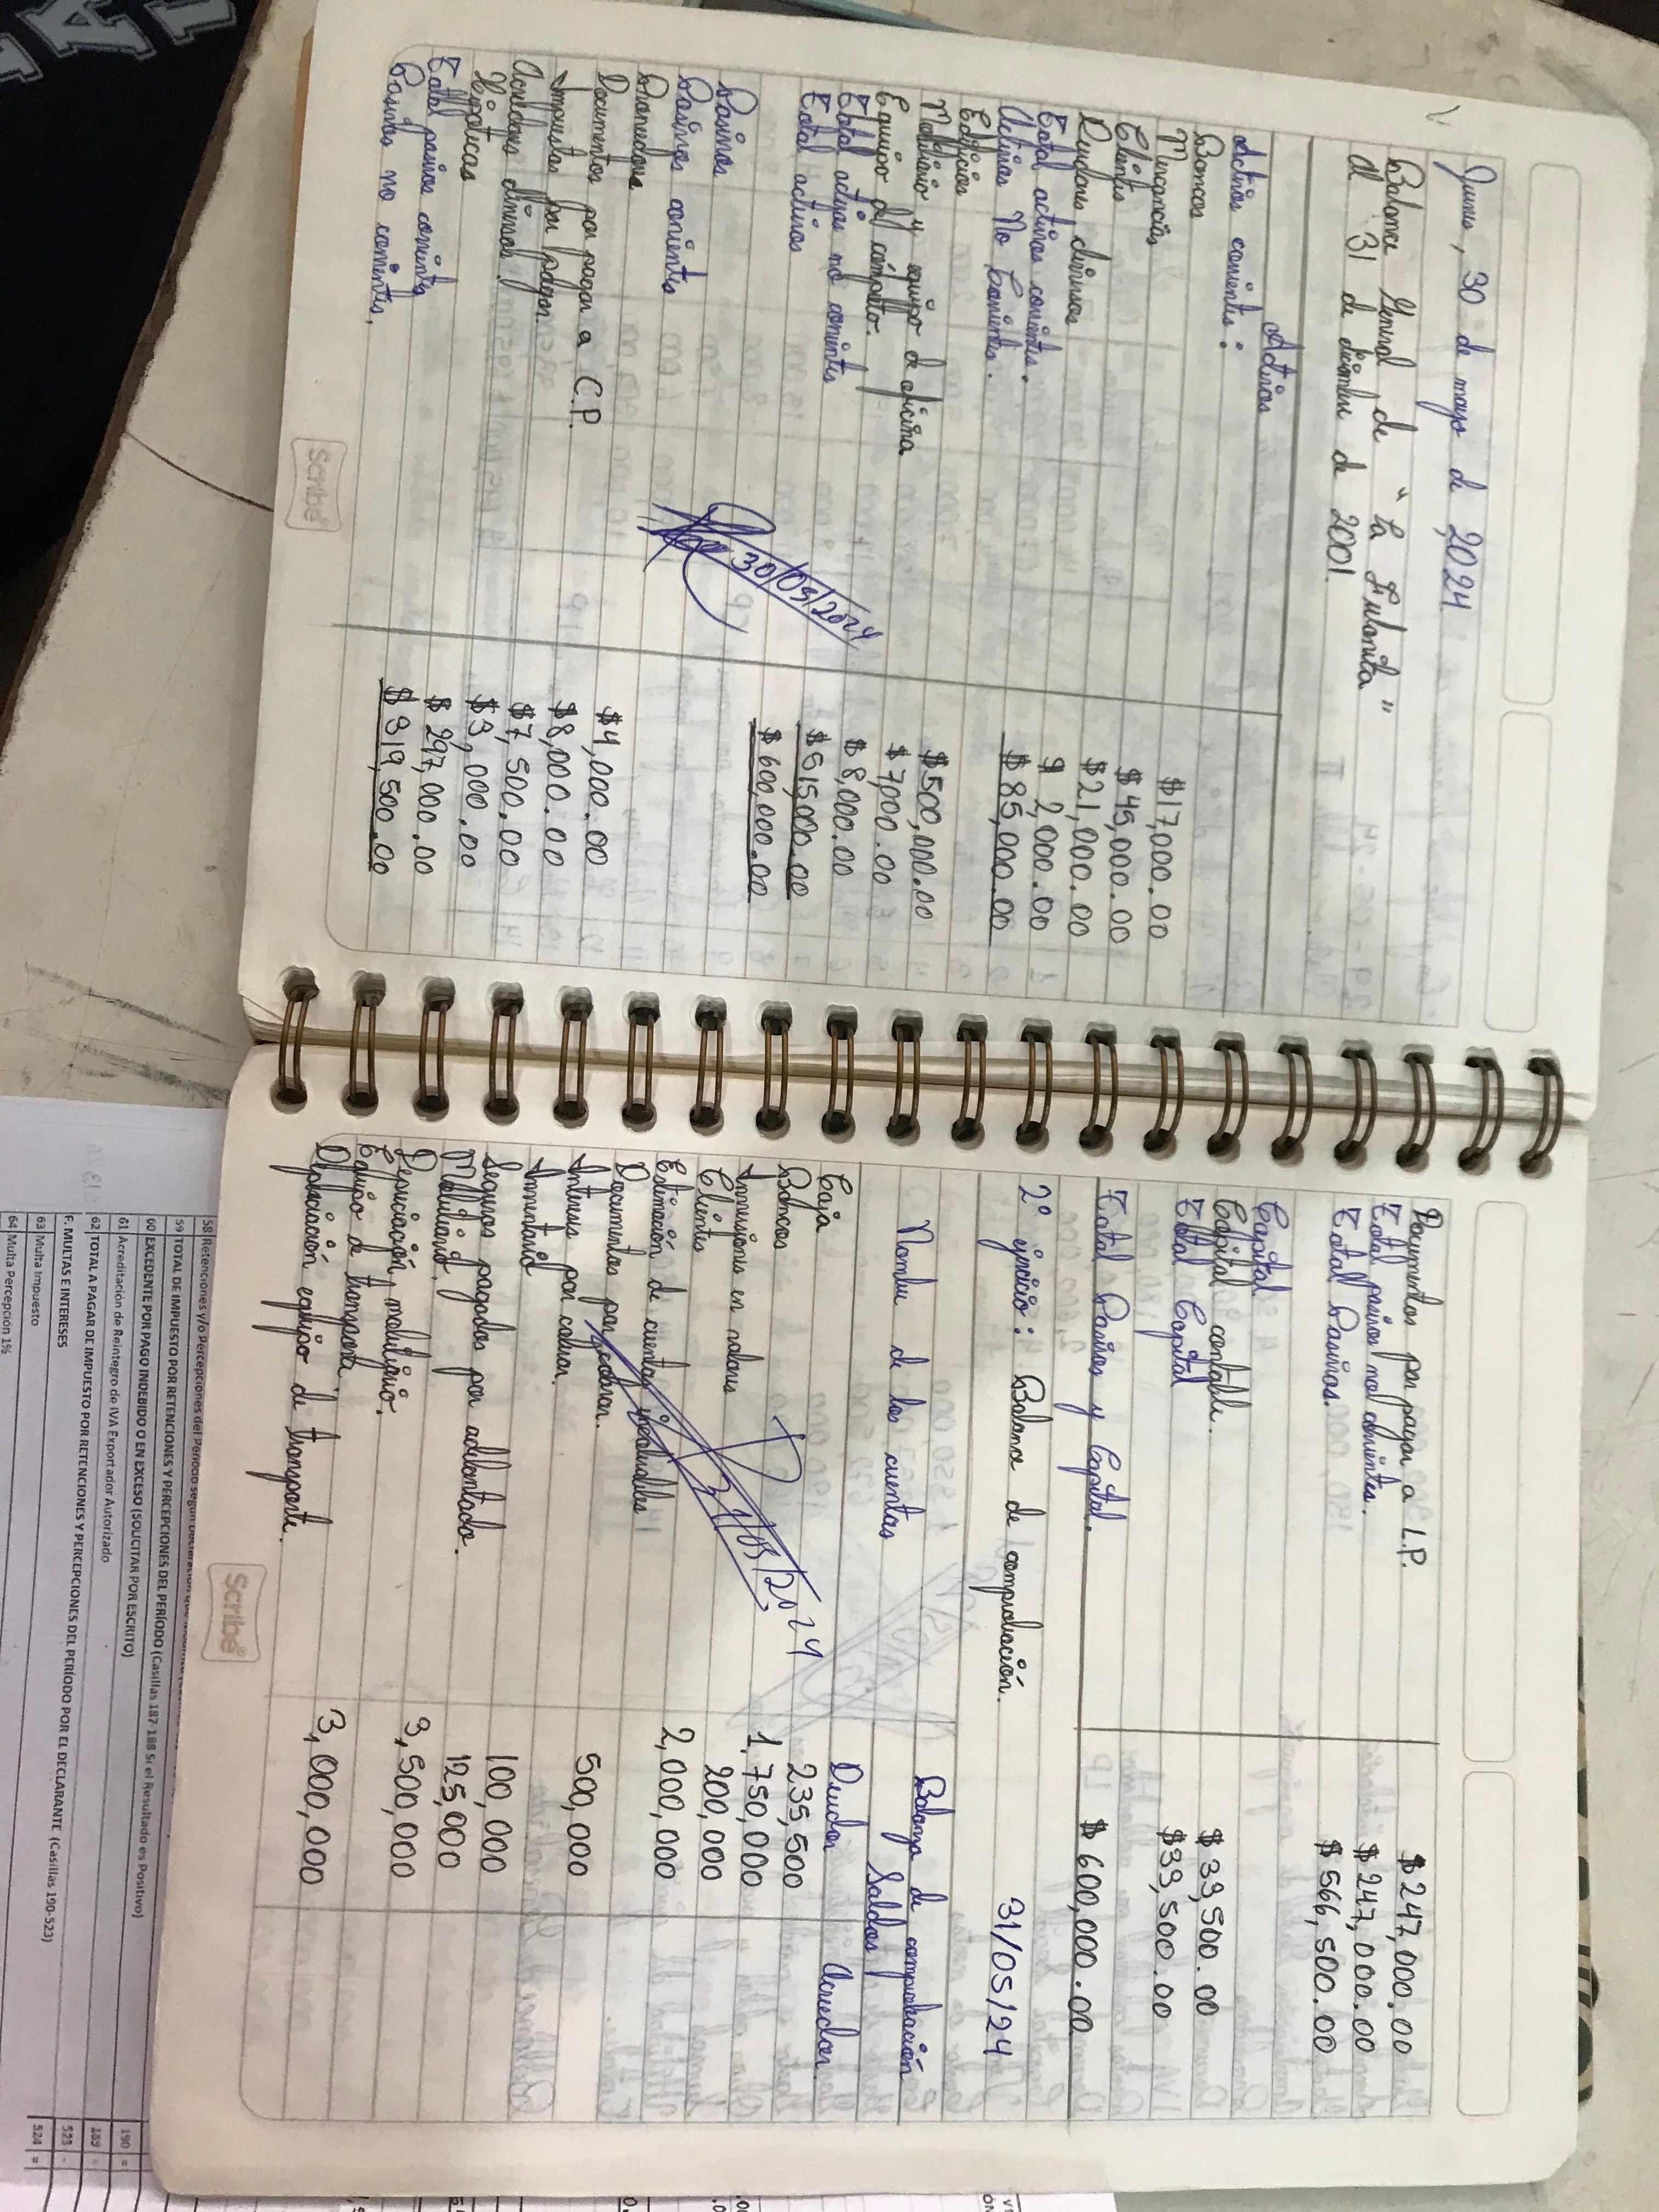 Jueves, 30 de mayo de 2024
Balance General de "La Zulanita"
al 31 de diciembre de 2001.
Activos
Activos corrientes:
Bancos $17,000.00
Mercancías $45,000.00
Clientes $21,000.00
Deudores diversos $2,000.00
Total activos corrientes. $85,000.00
Activos No Corrientes.
Edificios $500,000.00
Mobiliario y equipo de oficina $7,000.00
Equipo de cómputo. $8,000.00
Total activos no corrientes $515,000.00
Total activos $600,000.00
Pasivos
Pasivos corrientes
Proveedores $4,000.00
Documentos por pagar a C.P. $8,000.00
Impuestos por pagar. $7,500.00
Acreedores diversos. $3,000.00
Hipotecas $297,000.00
Total pasivos corrientes $319,500.00
Pasivos no corrientes.
30/05/2024
Scribe
Documentos por pagar a L.P. $247,000.00
Total pasivos no corrientes. $247,000.00
Total Pasivos. $566,500.00
Capital
Capital contable. $33,500.00
Total Capital $33,500.00
Total Pasivos y Capital. $600,000.00
2º ejercicio: Balance de comprobación. 31/05/24
Nombre de las cuentas Balanza de comprobación
Saldos
Deudor Acreedor
Caja 235,500
Bancos 1,750,000
Inversiones en valores 200,000
Clientes 2,000,000
Estimación de cuentas incobrables
Documentos por cobrar. 500,000
Intereses por cobrar.
Inventario 100,000
Seguros pagados por adelantado. 125,000
Mobiliario. 3,500,000
Depreciación mobiliario.
Equipo de transporte. 3,000,000
Depreciación equipo de transporte.
31/05/2024
Scribe
59 TOTAL DE IMPUESTO POR RETENCIONES Y PERCEPCIONES DEL PERÍODO (Casillas 187-188 Si el Resultado es Positivo)
60 EXCEDENTE POR PAGO INDEBIDO O EN EXCESO (SOLICITAR POR ESCRITO)
61 Acreditación de Reintegro de IVA Exportador Autorizado 190 =
62 TOTAL A PAGAR DE IMPUESTO POR RETENCIONES Y PERCEPCIONES DEL PERÍODO POR EL DECLARANTE (Casillas 190-523)
F. MULTAS E INTERESES
63 Multa Impuesto 523
64 Multa Percepción 1% 524 =